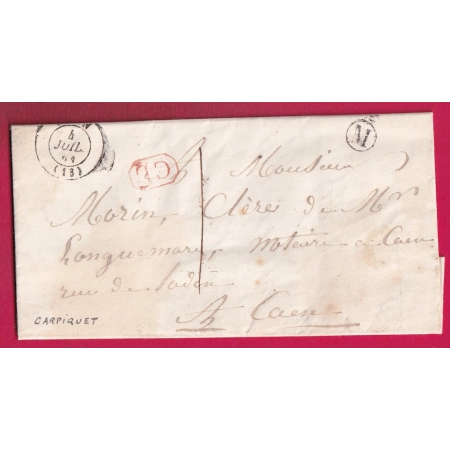 4
JUIL.
(13)
M
CL
1
Monsieur
Morin, Clerc de Mr
Longuemare, Notaire a Caen
rue de
A Caen
CARPIQUET